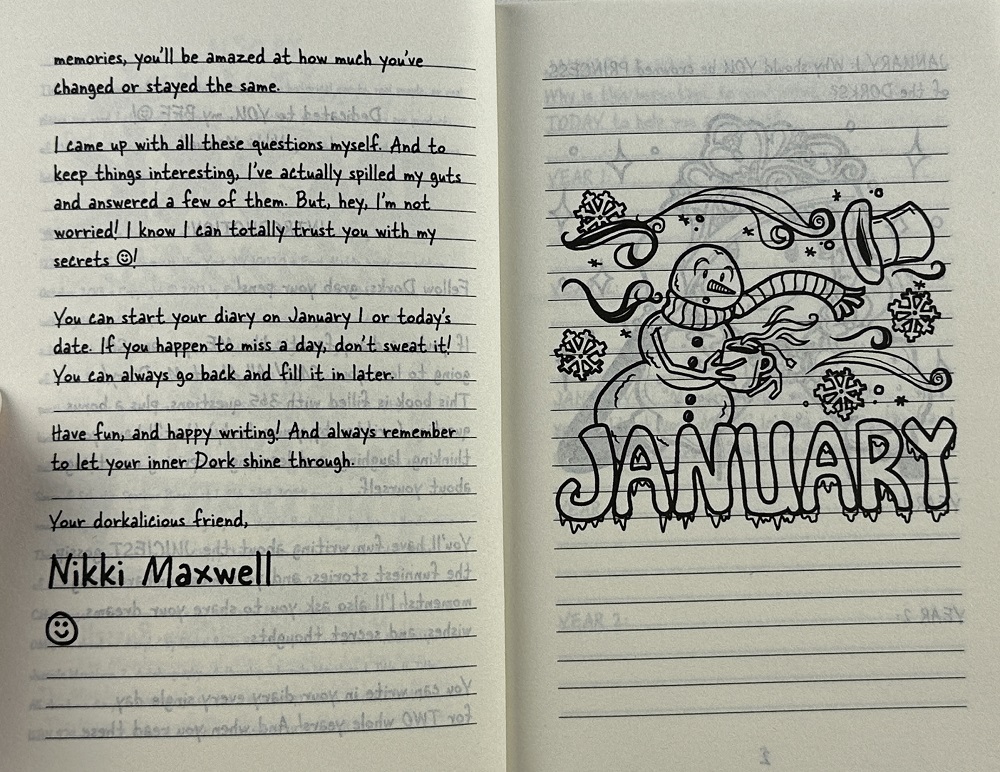 memories, you'll be amazed at how much you've
changed or stayed the same.
I came up with all these questions myself. And to
keep things interesting, I've actually spilled my guts
and answered a few of them. But, hey, I'm not
worried! I know I can totally trust you with my
secrets ☺!
You can start your diary on January 1 or today's
date. If you happen to miss a day, don't sweat it!
You can always go back and fill it in later.
Have fun, and happy writing! And always remember
to let your inner Dork shine through.
Your dorkalicious friend,
Nikki Maxwell
☺
JANUARY